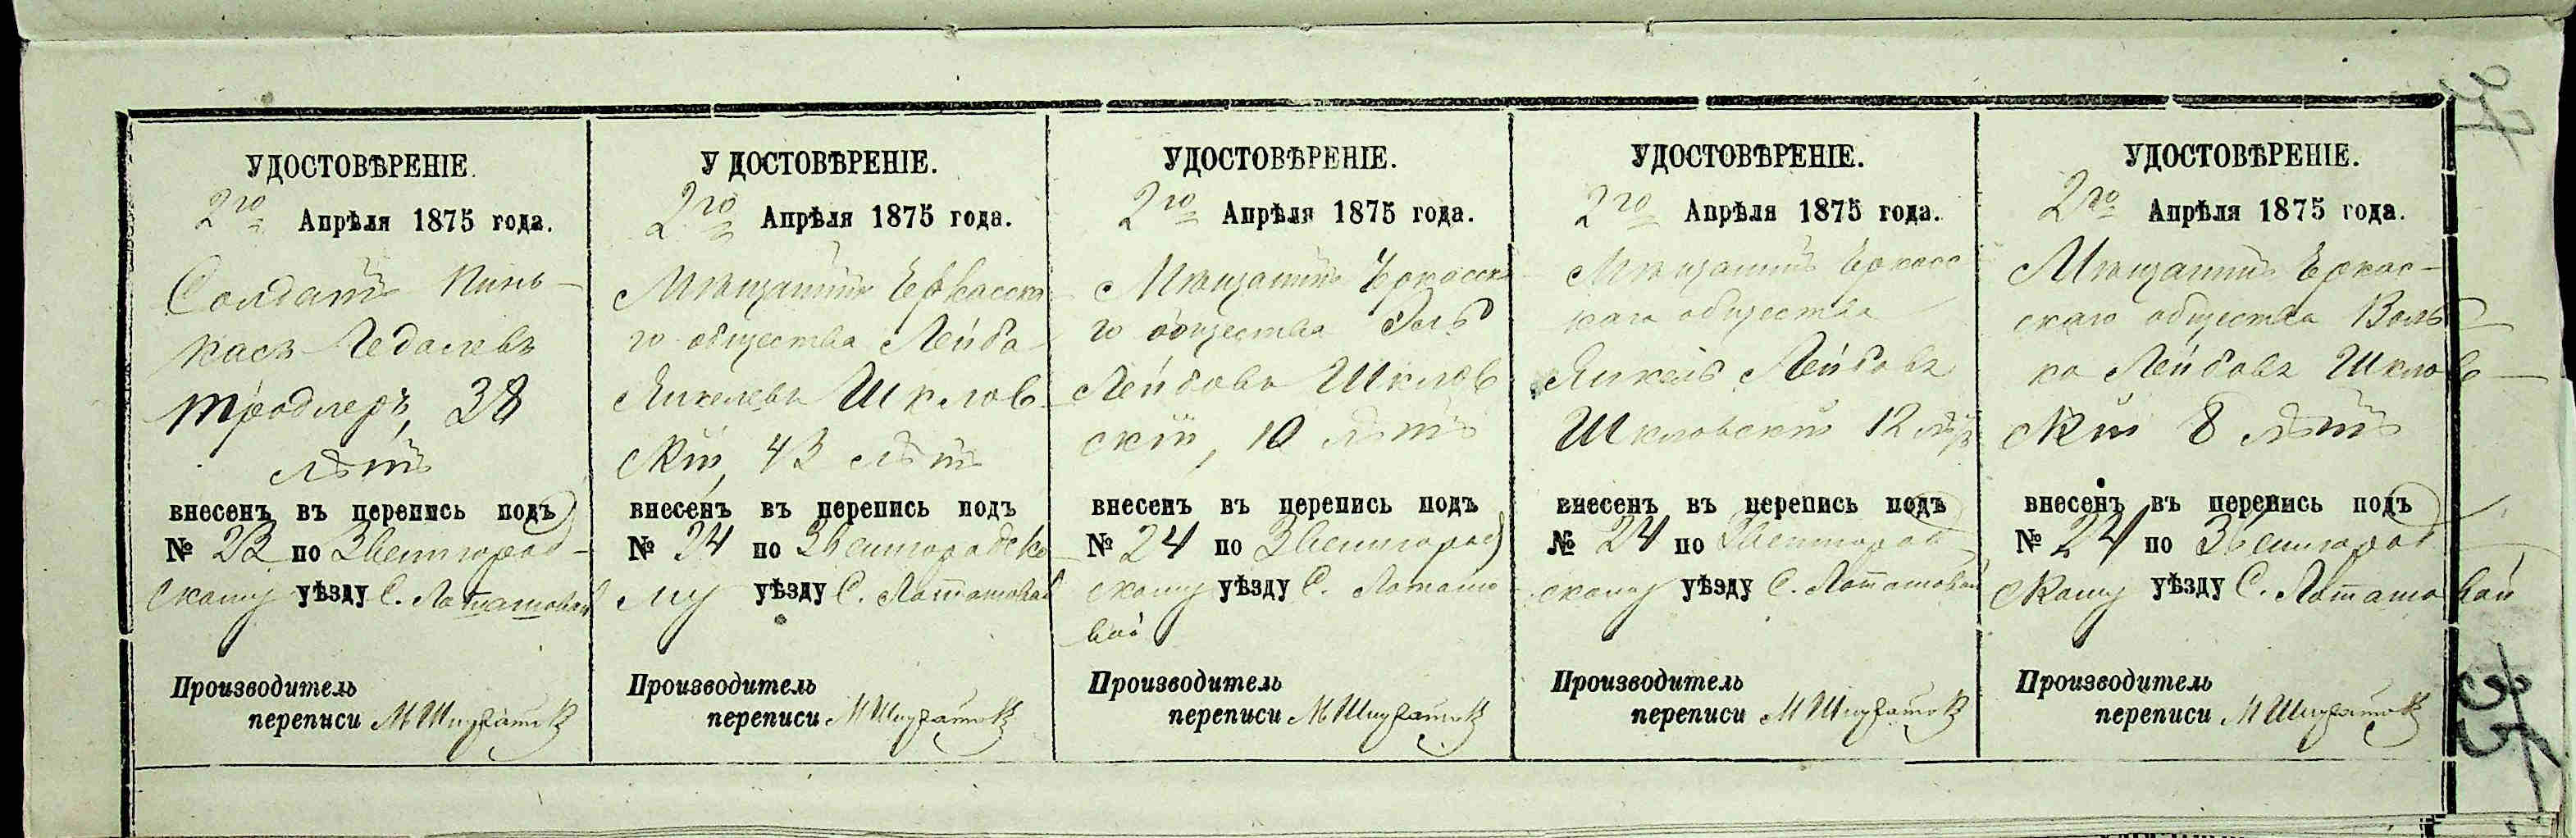 УДОСТОВѢРЕНІЕ.
2го Апрѣля 1875 года.
Солдатъ Пинь-
касъ Гедалевъ
Тродлеръ, 38
лѣтъ
внесенъ въ перепись подъ
№ 23 по Звенигород-
скому уѣзду С. Поташовой
Производитель
переписи М
У ДОСТОВѢРЕНІЕ.
2го Апрѣля 1875 года.
Мѣщанинъ Черкасска
го общества Лейба
Янкелевъ Шклов
скій, 43 лѣтъ
внесенъ въ перепись подъ
№ 24 по Звенигородско
му уѣзду С. Поташовой
Производитель
переписи М
УДОСТОВѢРЕНІЕ.
2го Апрѣля 1875 года.
Мѣщанинъ Черкасска
го общества
Лейбовъ Шклов
скій, 10 лѣтъ
внесенъ въ перепись подъ
№ 24 по Звенигород
скому уѣзду С. Поташо
вой
Производитель
переписи М
УДОСТОВѢРЕНІЕ.
2го Апрѣля 1875 года.
Мѣщанинъ Черкасс
каго общества
Янкель Лейбовъ
Шкловскій 12 лѣтъ
внесенъ въ перепись подъ
№ 24 по Звенигород
скому уѣзду С. Поташовой
Производитель
переписи М
УДОСТОВѢРЕНІЕ.
2го Апрѣля 1875 года.
Мѣщанинъ Черкас-
скаго общества Воль
ко Лейбовъ Шклов-
скій 8 лѣтъ
внесенъ въ перепись подъ
№ 24 по Звенигород
скому уѣзду С. Поташовой
Производитель
переписи М